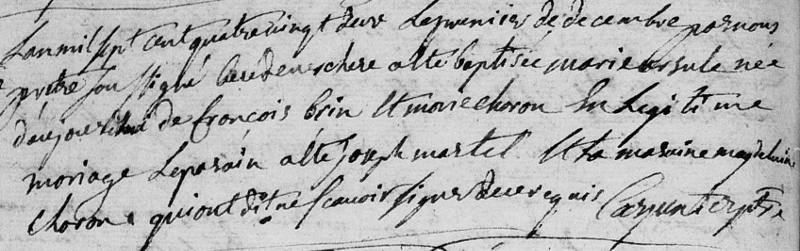 Lan mil sept cent quatre vingt deux Le premier de decembre par nous
prêtre sous signé curé de archere a été baptisée marie ursule née
daujourdhui de francois brin Et marie choron En Legitime
mariage Le parain a été joseph martel Et La maraine magdelaine
choron qui ont dit ne scavoir signer de ce requis Carpentier ptre